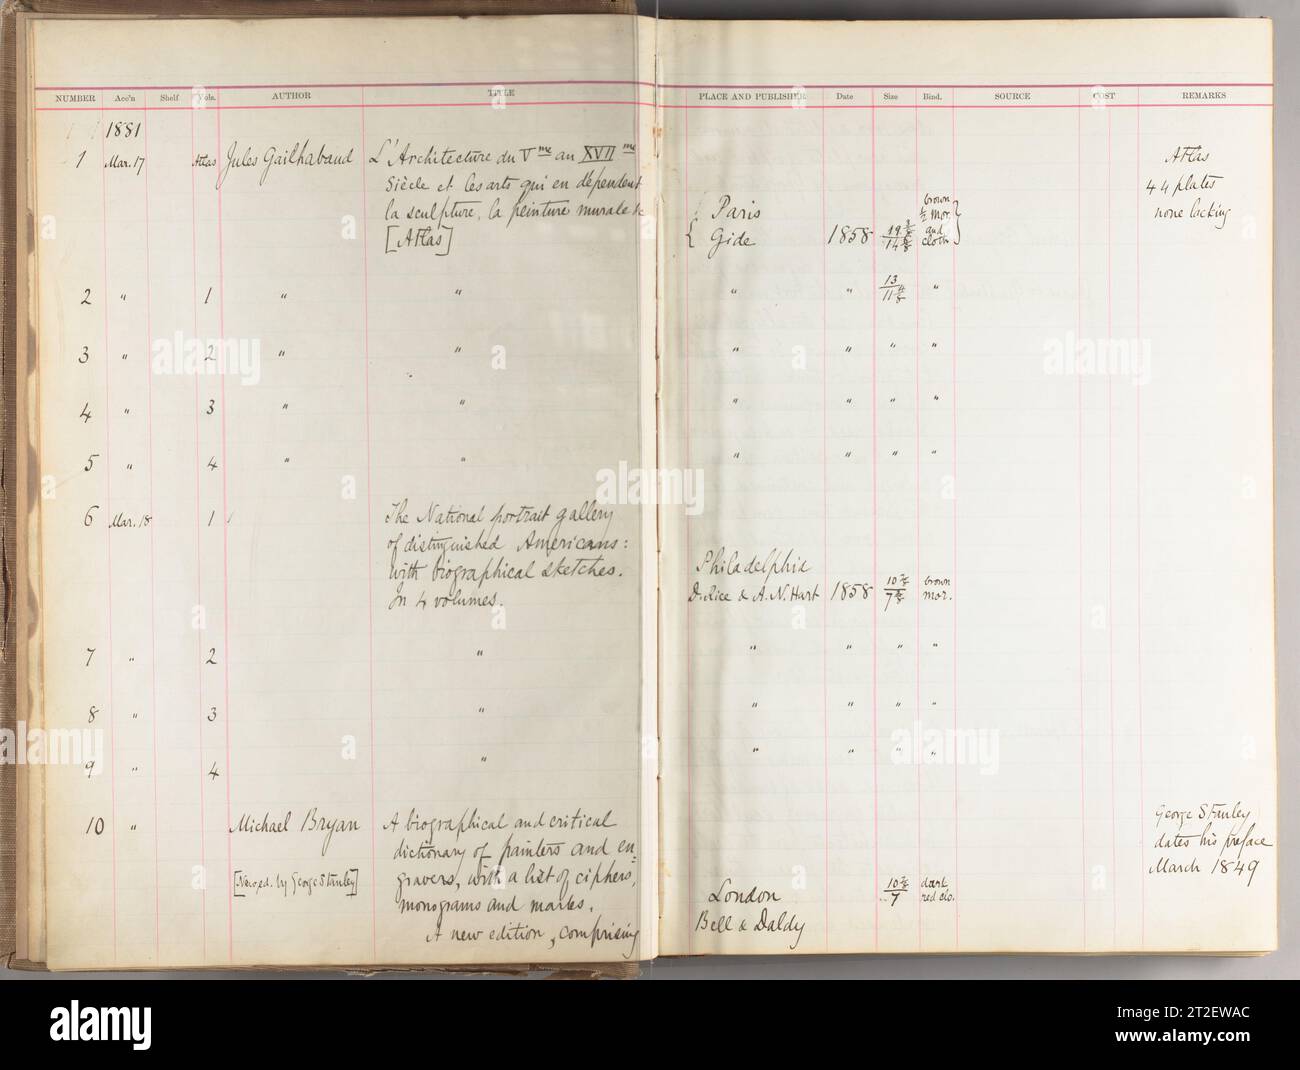 NUMBER Acc'n Shelf Vols. AUTHOR TITLE PLACE AND PUBLISHER Date Size Bind. SOURCE COST REMARKS
1881
1 Mar. 17 Atlas Jules Gailhabaud L'Architecture du Vme au XVIIme
Siècle et les arts qui en dépendent
la sculpture, la peinture murale &c
[Atlas]
Paris
Gide 1858 brown ½ mor. and cloth
Atlas
44 plates
none lacking
2 " 1 " " " " 13 "
3 " 2 " " " " " "
4 " 3 " " " " " "
5 " 4 " " " " " "
6 Mar. 18 1 The National portrait gallery
of distinguished Americans:
with biographical sketches.
In 4 volumes.
Philadelphia
D. Rice & A. N. Hart 1858 brown mor.
7 " 2 " " " " "
8 " 3 " " " " "
9 " 4 " " " " "
10 " Michael Bryan A biographical and critical
dictionary of painters and en=
[New ed. by George Stanley] gravers, with a list of ciphers,
monograms and marks.
A new edition, comprising
London
Bell & Daldy
red clo.
George Stanley
dates his preface
March 1849
alamy
a
alamy
Image ID: 2T2EWAC
www.alamy.com